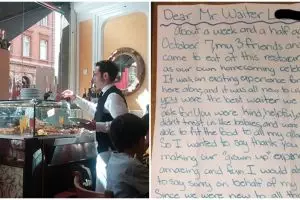 Dear Mr Waiter
About a week and a half a
October 7, my 3 friends an
came to eat at this restaura
as our own homecoming celeb
It was an exciting experience
here alone, and it was all new to u
you were the best waiter we
ask for! You were kind, helpful,
didn't treat us like babies, and were
able to fit the food to all my aller
So I want to say thank you
making our "grown up" exper
amazing and fun. I would als
to say sorry on behalf of my
Since we were new to all the